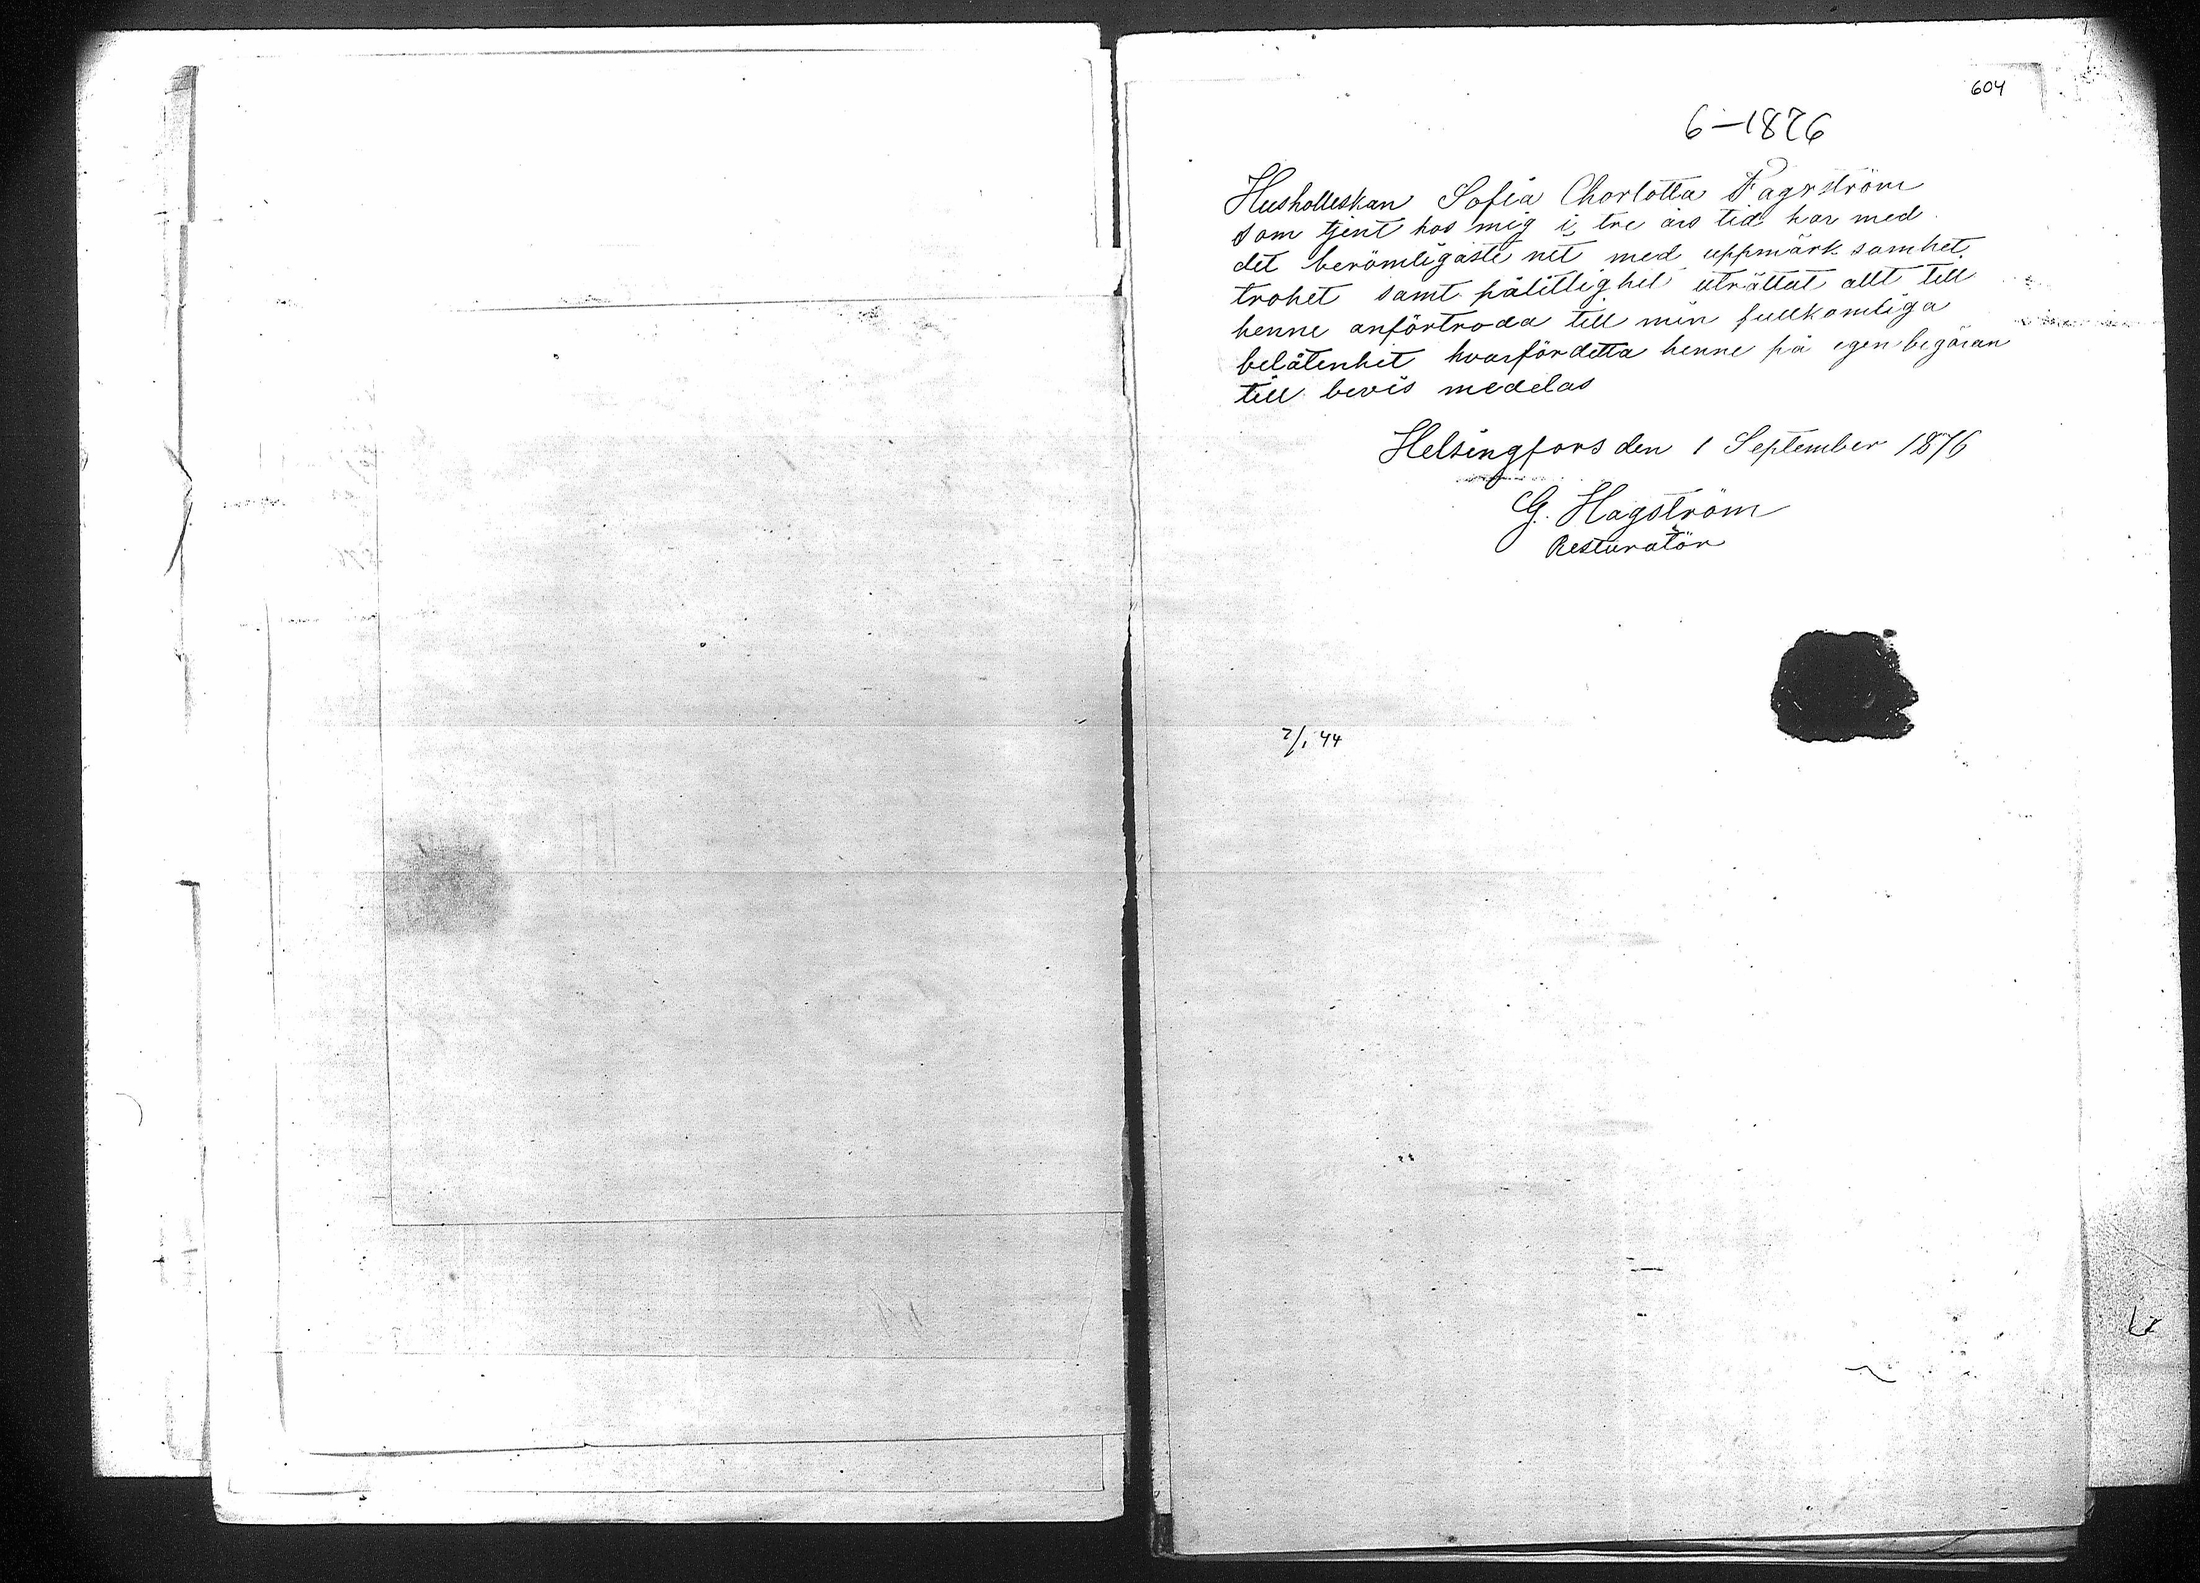 604
6-1876
Husholleskan Sofia Charlotta Fagerström
som tjent hos mig i tre års tid har med
det berömligaste nit med uppmärksamhet,
trohet samt pålitlighet uträttat allt till
henne anförtroda till min fullkomliga
belåtenhet hvarför detta henne på egen begäran
till bevis medelas
Helsingfors den 1 September 1876
G. Hagström
Resturatör
2/1 44